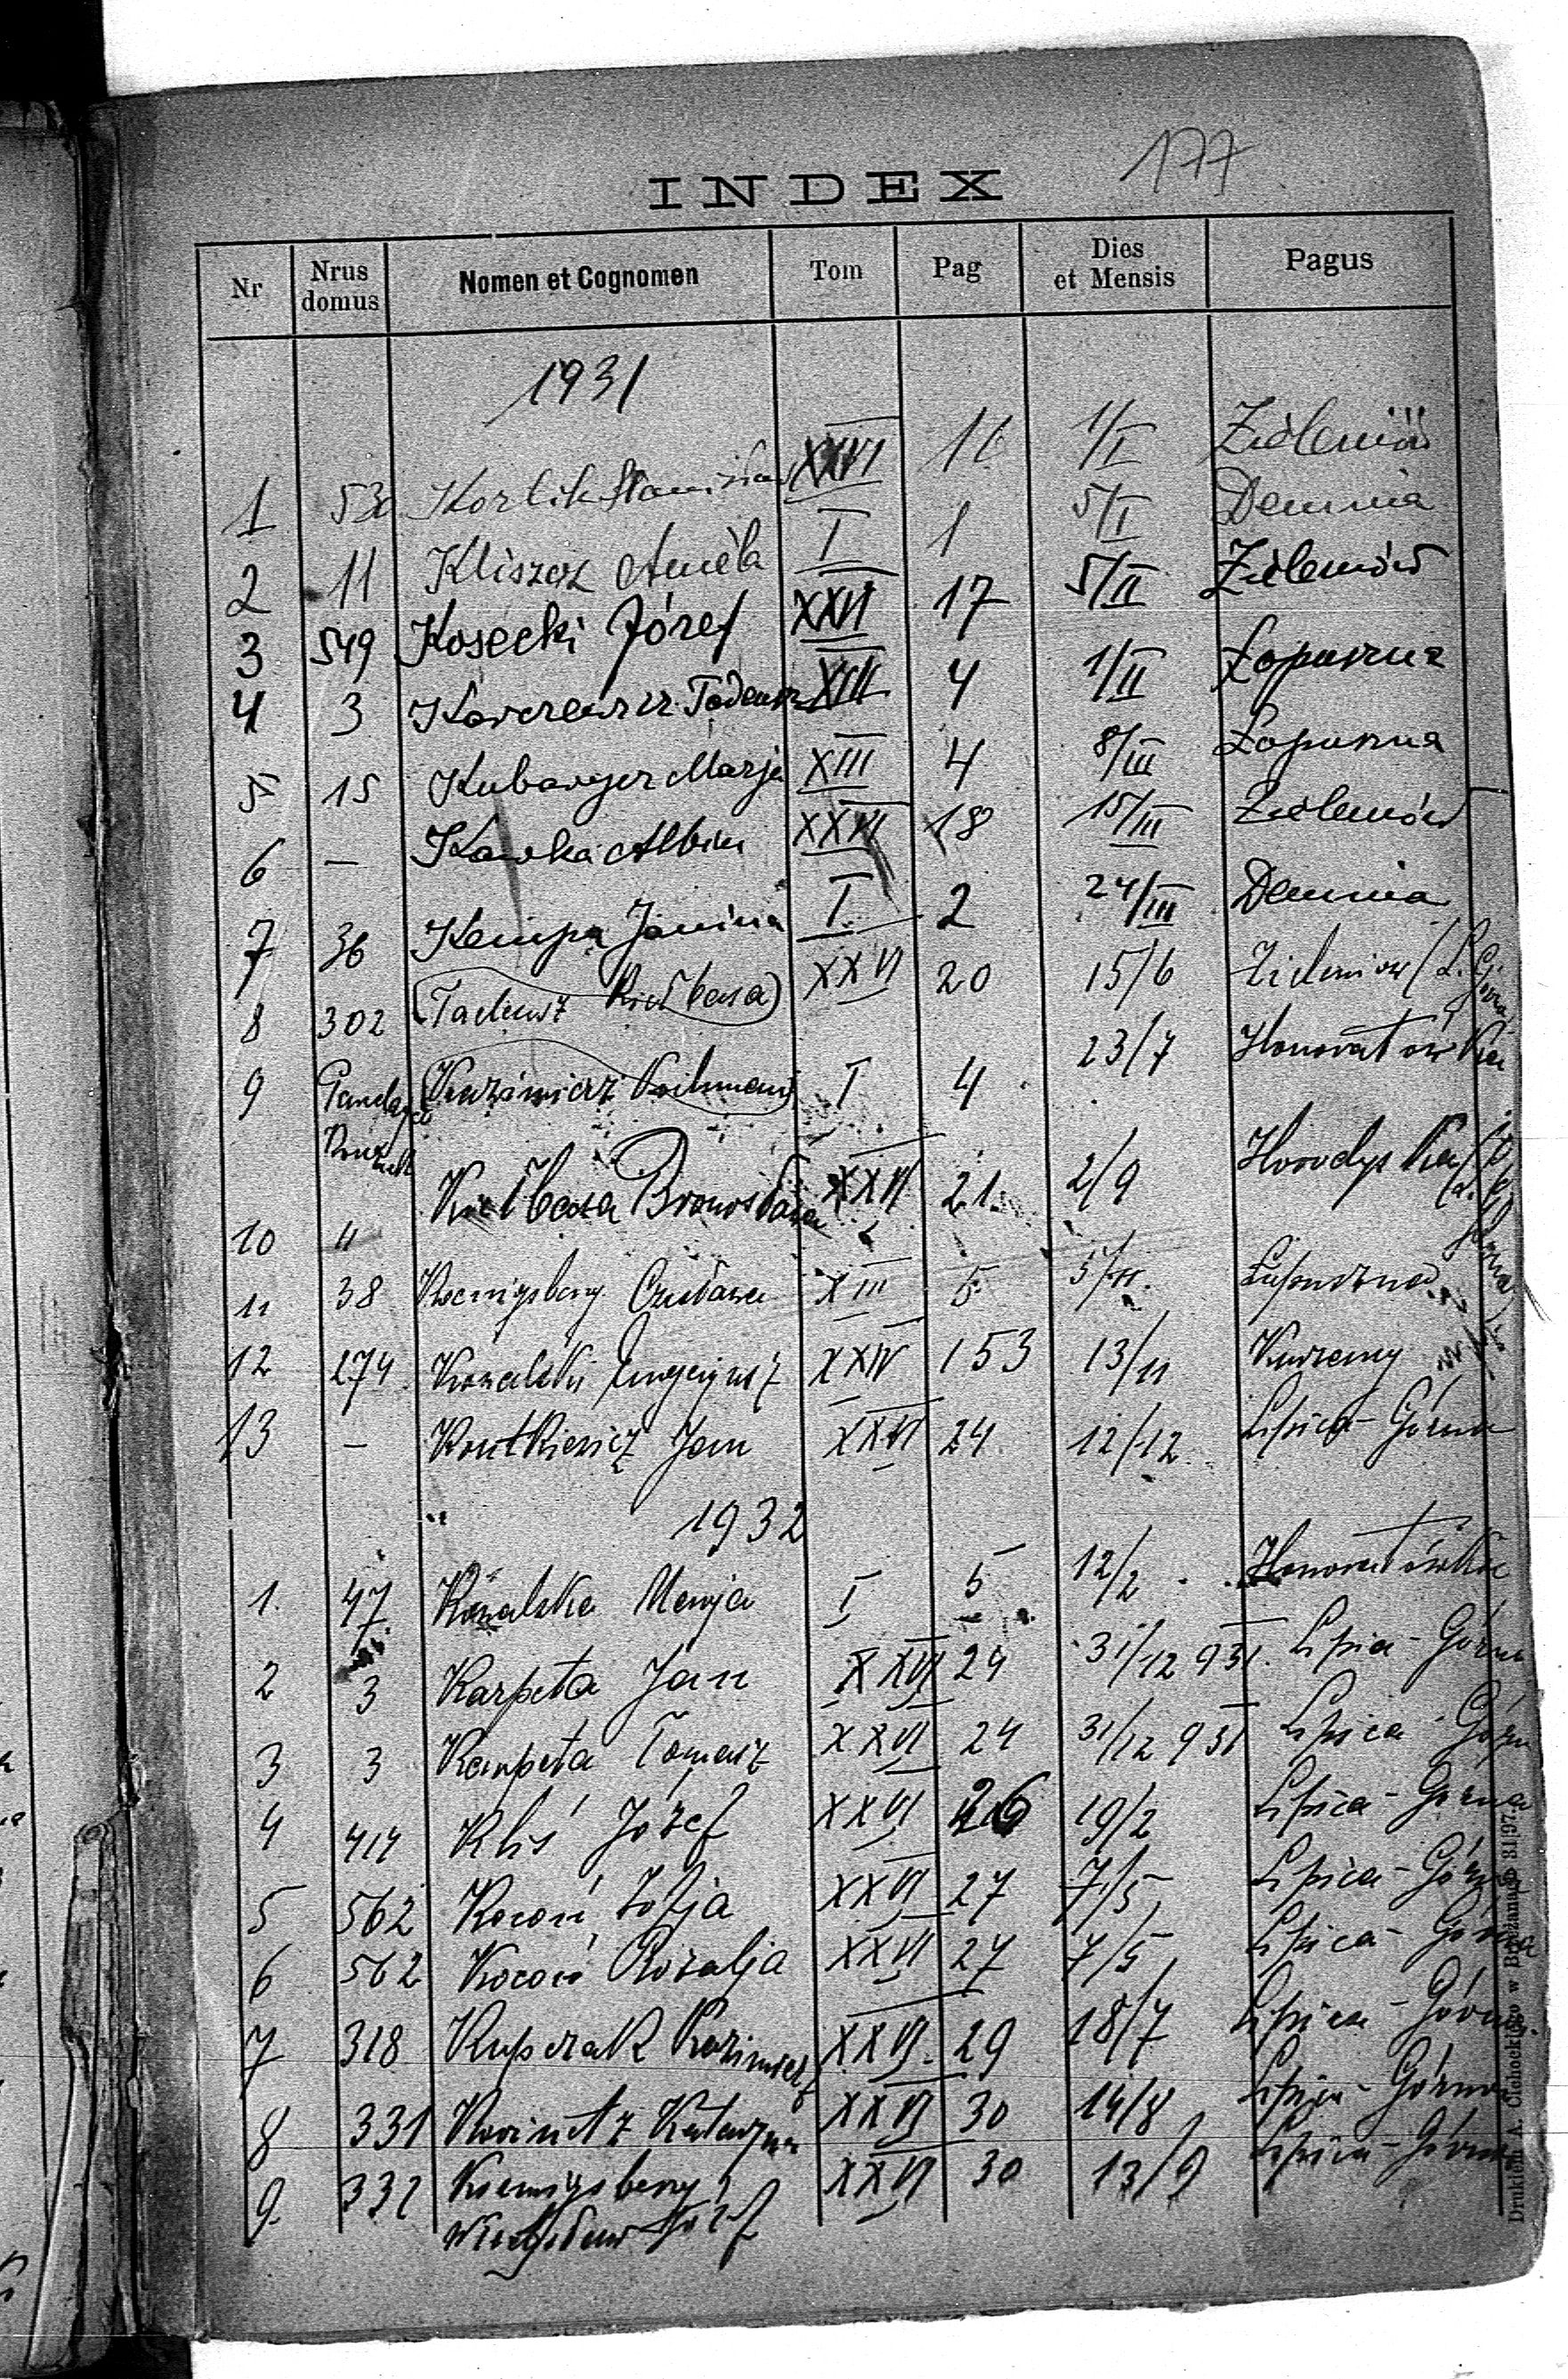 177
INDEX
Nr | Nrus domus | Nomen et Cognomen | Tom | Pag | Dies et Mensis | Pagus
1931
1 | 530 | Korlik Stanisław | XXVI | 11 | 1/I | Zielenów
2 | 11 | Kliszcz Aniela | I | 1 | 5/I | Demnia
3 | 549 | Kosecki Józef | XXVI | 17 | 5/II | Zielenów
4 | 3 | Tadeusz | XIII | 4 | 1/II | Łopuszna
5 | 15 | Marja | XIII | 4 | 8/III | Łopuszna
6 | — | Kawka Albin | XXVI | 18 | 15/III | Zielenów
7 | 36 | Kempa Janina | I | 2 | 24/III | Demnia
8 | 302 | (Tadeusz Kiełbasa) | XXVI | 20 | 15/6 | Zieleniow (L. Górna)
9 | (Kazimierz) | I | 4 | 23/7 | Honoratówka
10 | " | Kiełbasa Bronosława | XXVI | 21 | 2/9 | Horodyska
11 | 38 | Koenigsberg Czesława | XIII | 5 | 5/11. | Łopuszna
12 | 274 | Kowalski | XXIV | 153 | 13/11 | Kurzany
13 | — | Jan | XXVI | 24 | 12/12. | Lipica-Górna
1932
1. | 47 | Kowalska Marja | I | 5 | 12/2 | Honoratówka
2 | 3 | Karpeta Jan | XXVI | 24 | 31/12 931. | Lipica-Górna
3 | 3 | Karpeta Tomasz | XXVI | 24 | 31/12 931 | Lipica-Górna
4 | 414 | Kliś Józef | XXVI | 26 | 19/2 | Lipica-Górna
5 | 562 | Kocoń Zofja | XXVI | 27 | 7/5 | Lipica-Górna
6 | 562 | Kocoń Rozalja | XXVI | 27 | 7/5 | Lipica-Górna
7 | 318 | Kupczak Kazimierz | XXVI. | 29 | 18/7 | Lipica-Górna
8 | 331 | Katarzyna | XXVI | 30 | 14/8 | Lipica-Górna
9. | 332 | Koenigsberg | XXVI | 30 | 13/9 | Lipica-Górna
Władysław Józef
Drukiem A. Cichockiego w Brzeżanach 31|97.